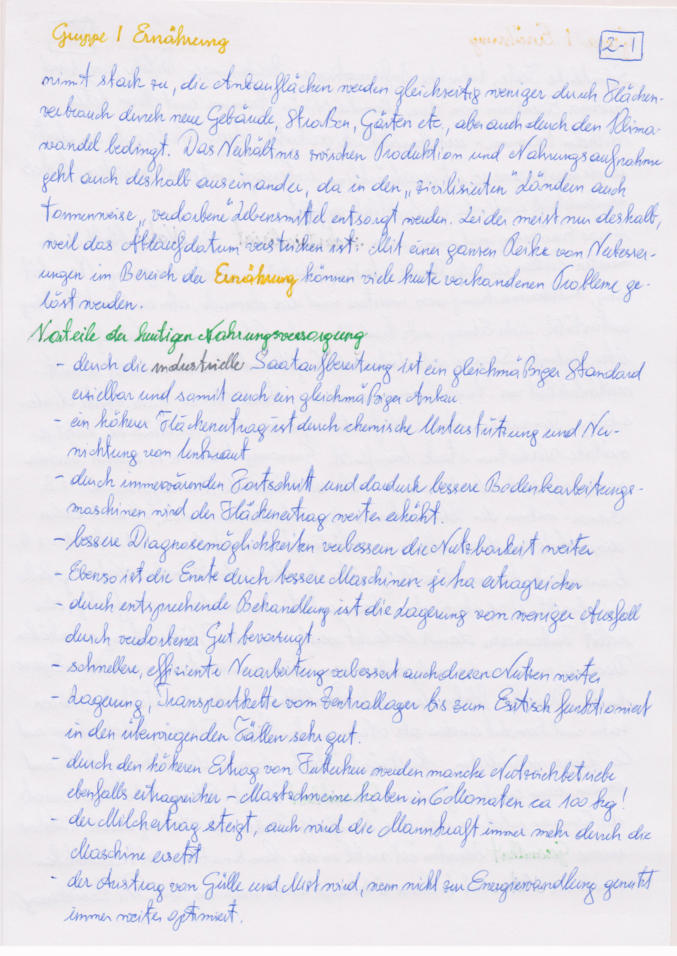 Gruppe 1 Ernährung
2-1
nimmt stark zu, die Anbauflächen werden gleichzeitig weniger durch Flächen-
verbrauch durch neue Gebäude, Straßen, Gärten etc., aber auch durch den Klima-
wandel bedingt. Das Verhältnis zwischen Produktion und Nahrungsaufnahme
geht auch deshalb auseinander, da in den "zivilisierten" Ländern auch
tonnenweise "verdorbene" Lebensmittel entsorgt werden. Leider meist nur deshalb,
weil das Ablaufdatum verstrichen ist. Mit einer ganzen Reihe von Verbesser-
ungen im Bereich der Ernährung können viele heute vorhandenen Probleme ge-
löst werden.
Vorteile der heutigen Nahrungsversorgung
- durch die industrielle Saataufbereitung ist ein gleichmäßiger Standard
erzielbar und somit auch ein gleichmäßiger Anbau
- ein höherer Flächenertrag ist durch chemische Unterstützung und Ver-
nichtung von Unkraut
- durch immerwärenden Fortschritt und dadurch bessere Bodenbearbeitungs-
maschinen wird der Flächenertrag weiter erhöht.
- bessere Diagnosemöglichkeiten verbessern die Nutzbarkeit weiter
- Ebenso ist die Ernte durch bessere Maschinen je ha ertragreicher
- durch entsprechende Behandlung ist die Lagerung von weniger Ausfall
durch verdorbenes Gut bevorzugt.
- schnellere, effiziente Verarbeitung verbessert auch diesen Nutzen weiter
- Lagerung, Transportkette vom Zentrallager bis zum Esstisch funktioniert
in den überwiegenden Fällen sehr gut.
- durch den höheren Ertrag von Futterheu werden manche Nutzviehbetriebe
ebenfalls ertragreicher - Mastschweine haben in 6 Monaten ca 100 kg!
- der Milchertrag steigt, auch wird die Mannkraft immer mehr durch die
Maschine ersetzt
- der Austrag von Gülle und Mist wird, wenn nicht zur Energiewandlung genutzt
immer weiter optimiert.